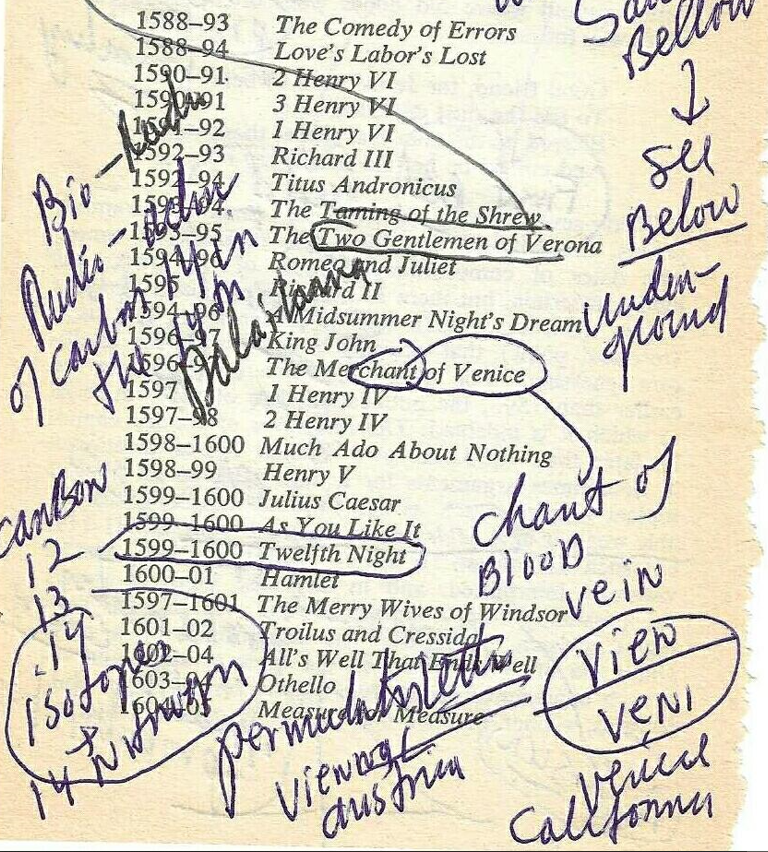 1588–93 The Comedy of Errors
1588–94 Love's Labor's Lost
1590–91 2 Henry VI
1590–91 3 Henry VI
1591–92 1 Henry VI
1592–93 Richard III
1592–94 Titus Andronicus
1593–94 The Taming of the Shrew
1593–95 The Two Gentlemen of Verona
1594–96 Romeo and Juliet
1595 Richard II
1594–96 A Midsummer Night's Dream
1596–97 King John
1596–97 The Merchant of Venice
1597 1 Henry IV
1597–98 2 Henry IV
1598–1600 Much Ado About Nothing
1598–99 Henry V
1599–1600 Julius Caesar
1599–1600 As You Like It
1599–1600 Twelfth Night
1600–01 Hamlet
1597–1601 The Merry Wives of Windsor
1601–02 Troilus and Cressida
1602–04 All's Well That Ends Well
1603–04 Othello
1604–05 Measure for Measure
Bellow
see
Below
under-
ground
Bio-
Radio-active
of carbon 14 in
the
Dalai Lama
carBon
12
13
14
isotopes
14 Nitrogen
chant of
Blood
vein
vien
veni
venice
California
vienna
austria